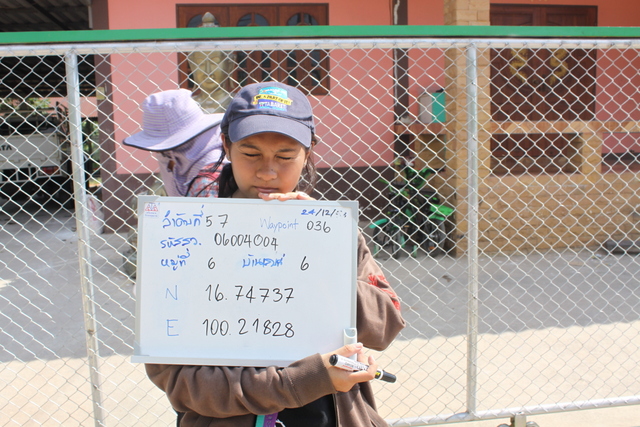 ลำดับที่ 57 24/12/
Waypoint 036
รหัสสว. 06004004
หมู่ที่ 6 บ้านเลขที่ 6
N 16.74737
E 100.21828